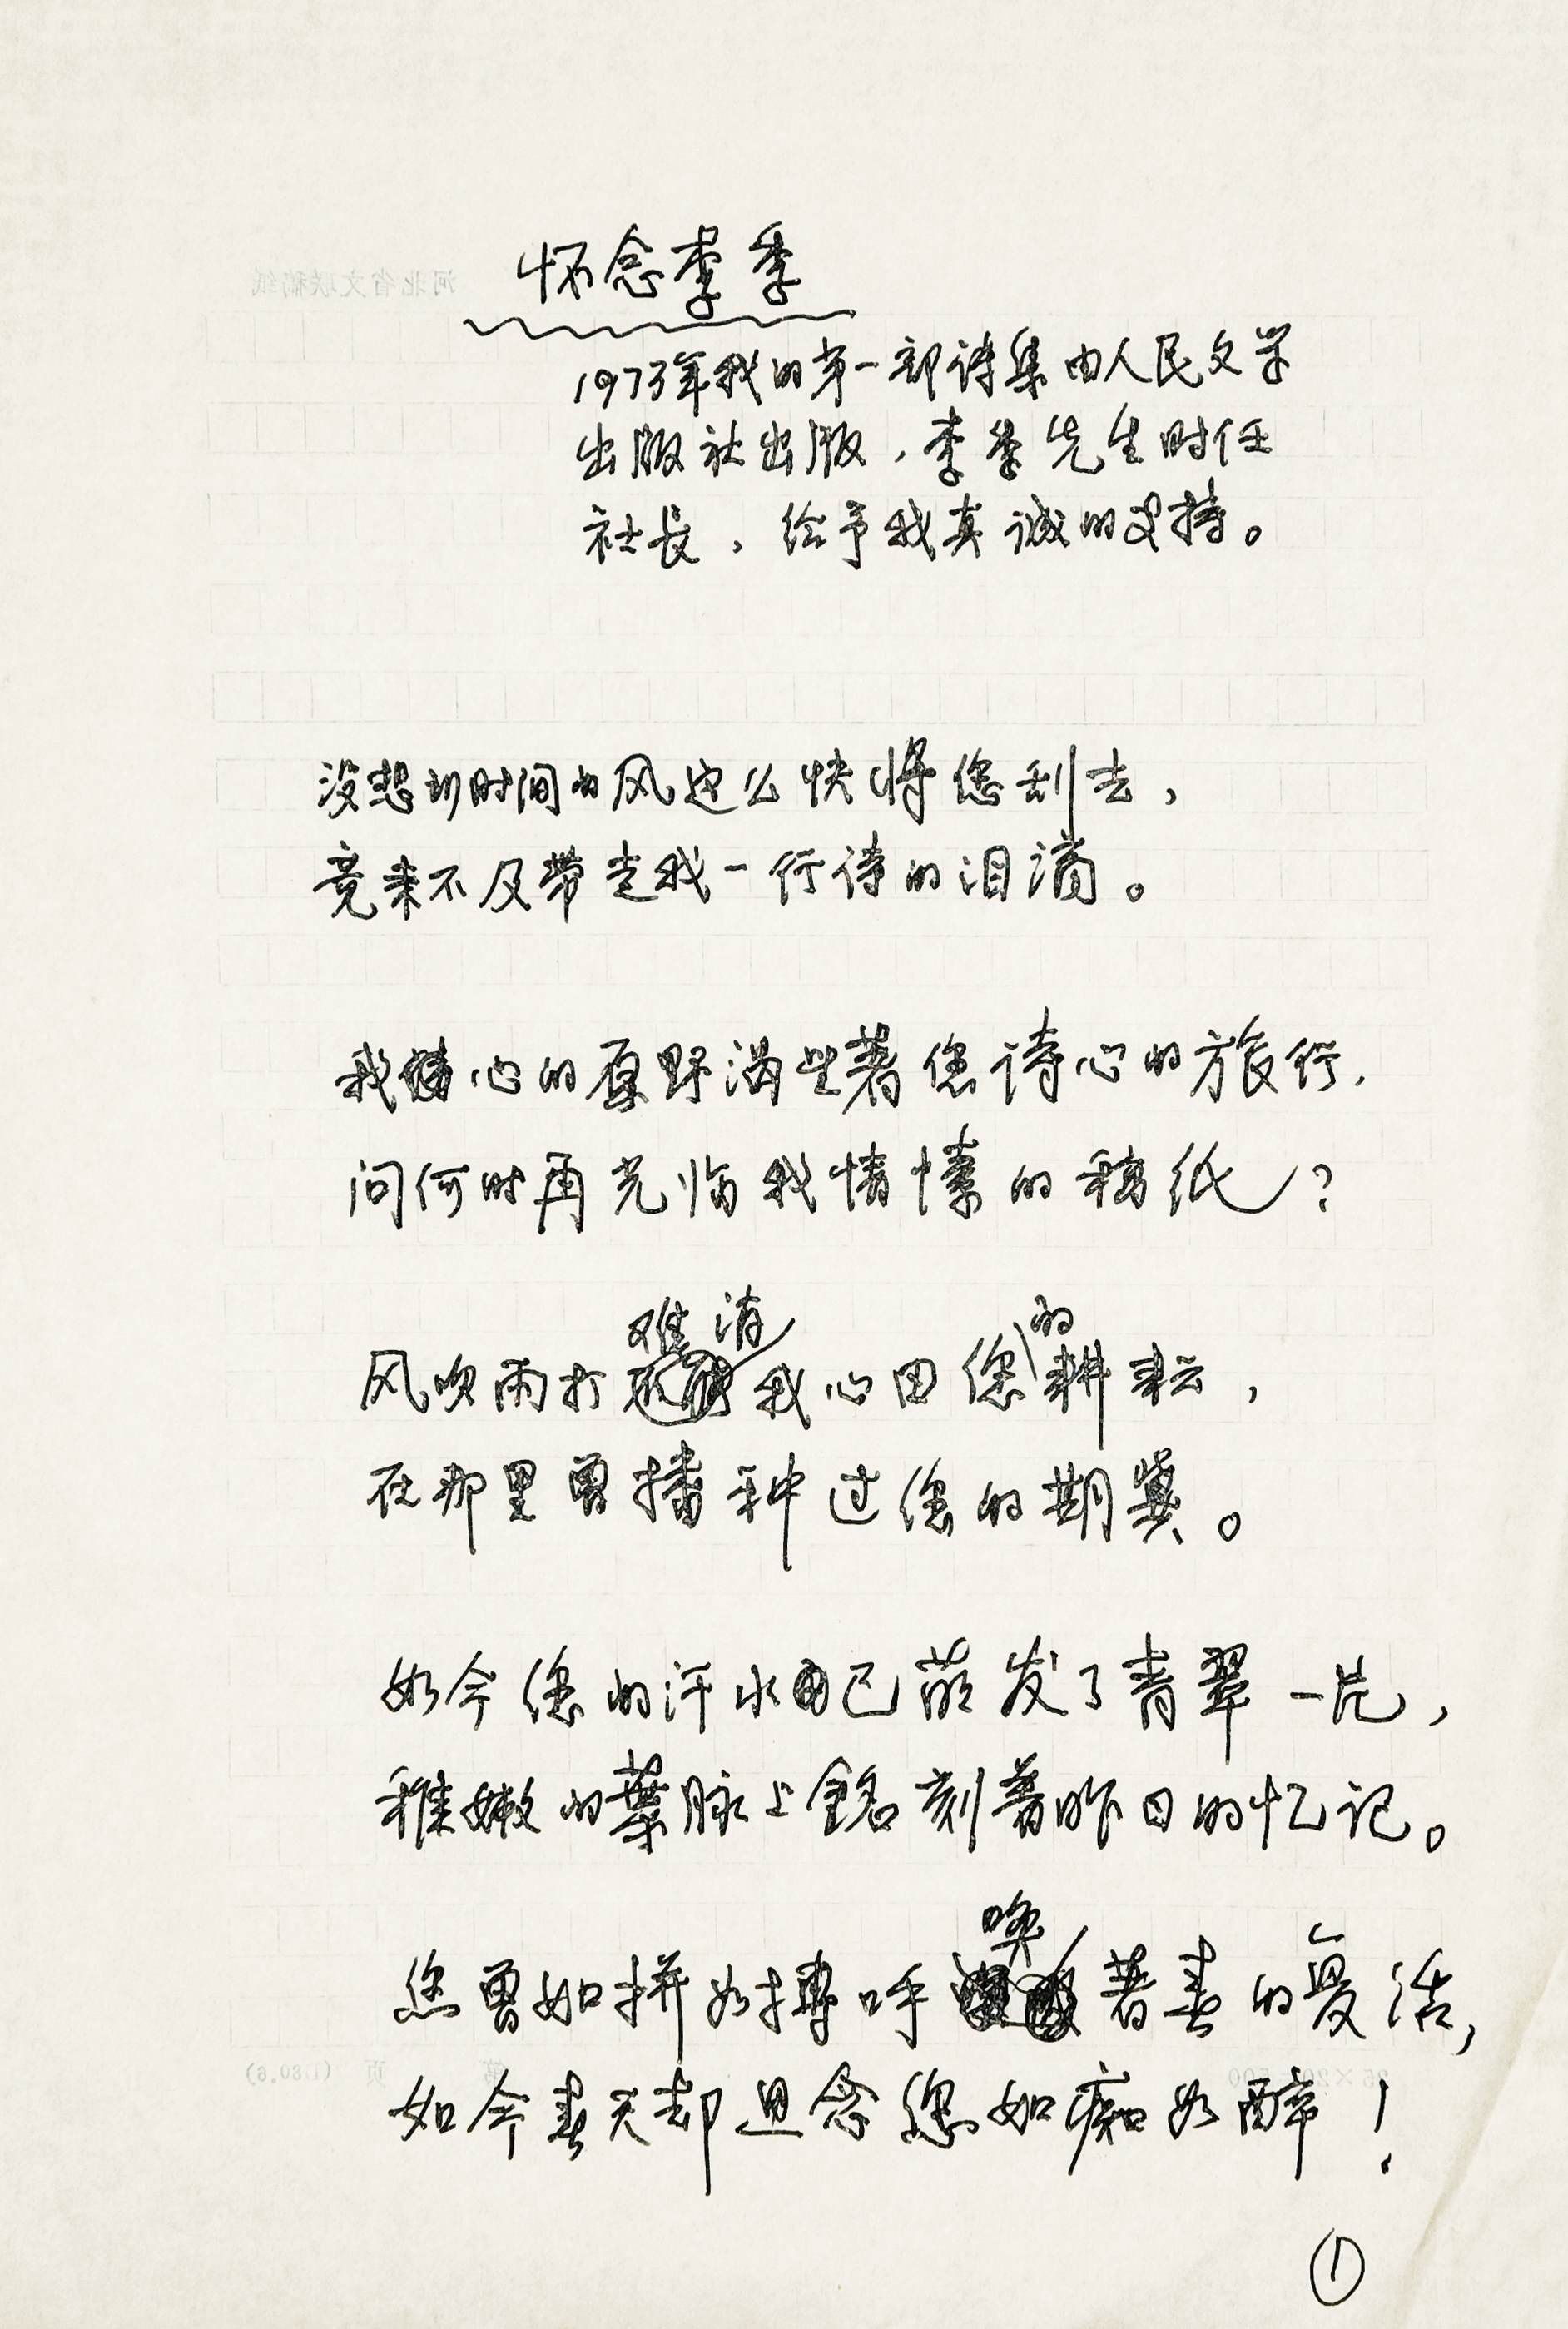 怀念李季
1973年我的第一部诗集由人民文学
出版社出版，李季先生时任
社长，给予我真诚的支持。
没想到时间的风这么快将您刮去，
竟来不及带走我一行诗的泪滴。
我心的原野满坐著您诗心的旅行，
问何时再光临我情愫的稿纸？
难消 的
风吹雨打我心田您耕耘，
在那里曾播种过您的期冀。
如今您的汗水已萌发了青翠一片，
稚嫩的葉脉上銘刻著昨日的忆记。
唤
您曾如拼如搏呼著春的复活，
如今春天却思念您如痴如醉！
①
河北省文联稿纸
第 页 (1.80.6)